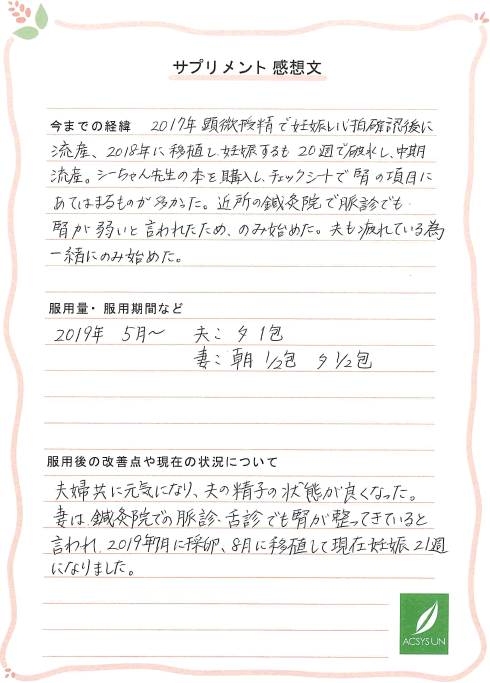 サプリメント 感想文
今までの経緯 2017年 顕微授精で妊娠し心拍確認後に
流産、2018年に移植し妊娠するも 20週で破水し、中期
流産。シーちゃん先生の本を購入し、チェックシートで腎の項目に
あてはまるものが多かった。近所の鍼灸院で脈診でも
腎が弱いと言われたため、のみ始めた。夫も疲れている為
一緒にのみ始めた。
服用量・服用期間など
2019年 5月～ 夫:夕 1包
妻:朝 1/2包 夕 1/2包
服用後の改善点や現在の状況について
夫婦共に元気になり、夫の精子の状態が良くなった。
妻は、鍼灸院での脈診、舌診でも腎が整ってきていると
言われ、2019年7月に採卵、8月に移植して現在妊娠21週
になりました。
ACSYSUN